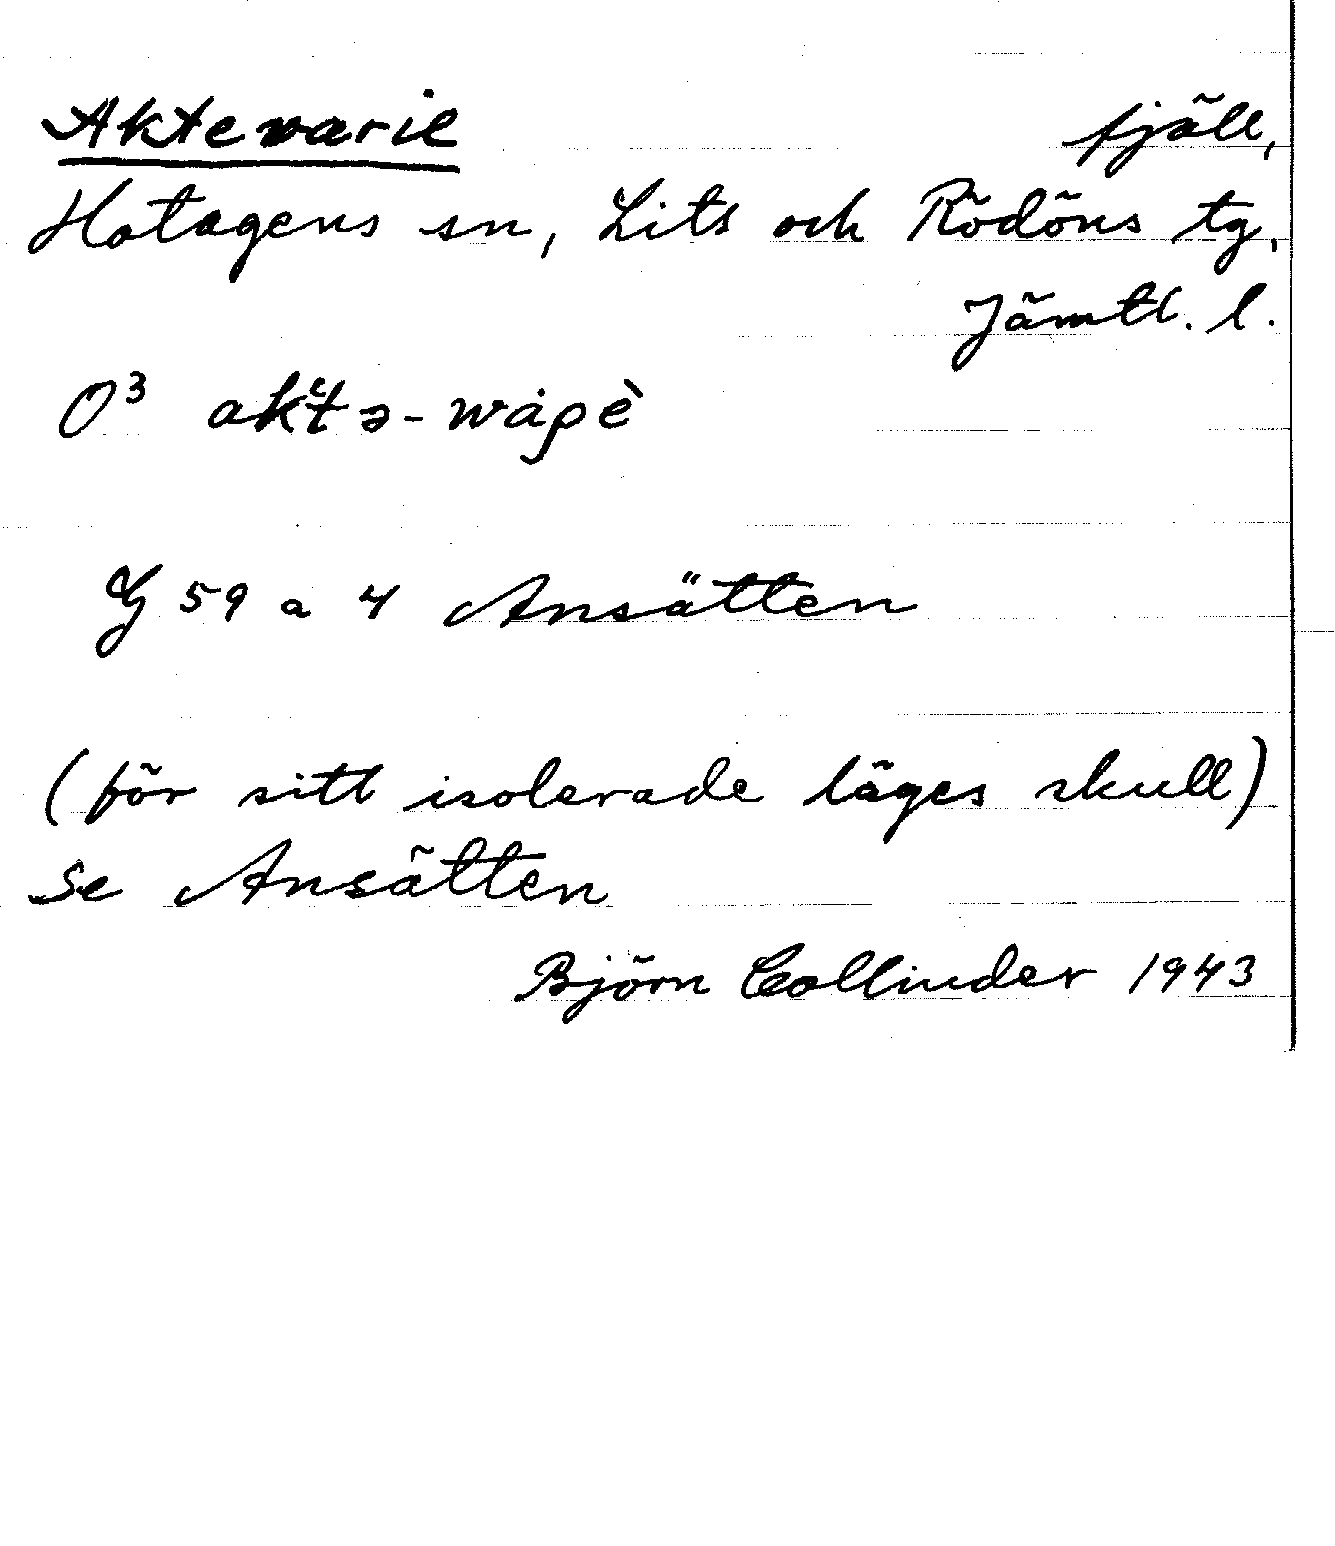 Aktevarie fjäll,
Hotagens sn, Lits och Rödöns tg.
Jämtl. l.
O³ aktə-wȧpè
G 59 a 4 Ansätten
(för sitt isolerade läges skull)
se Ansätten
Björn Collinder 1943